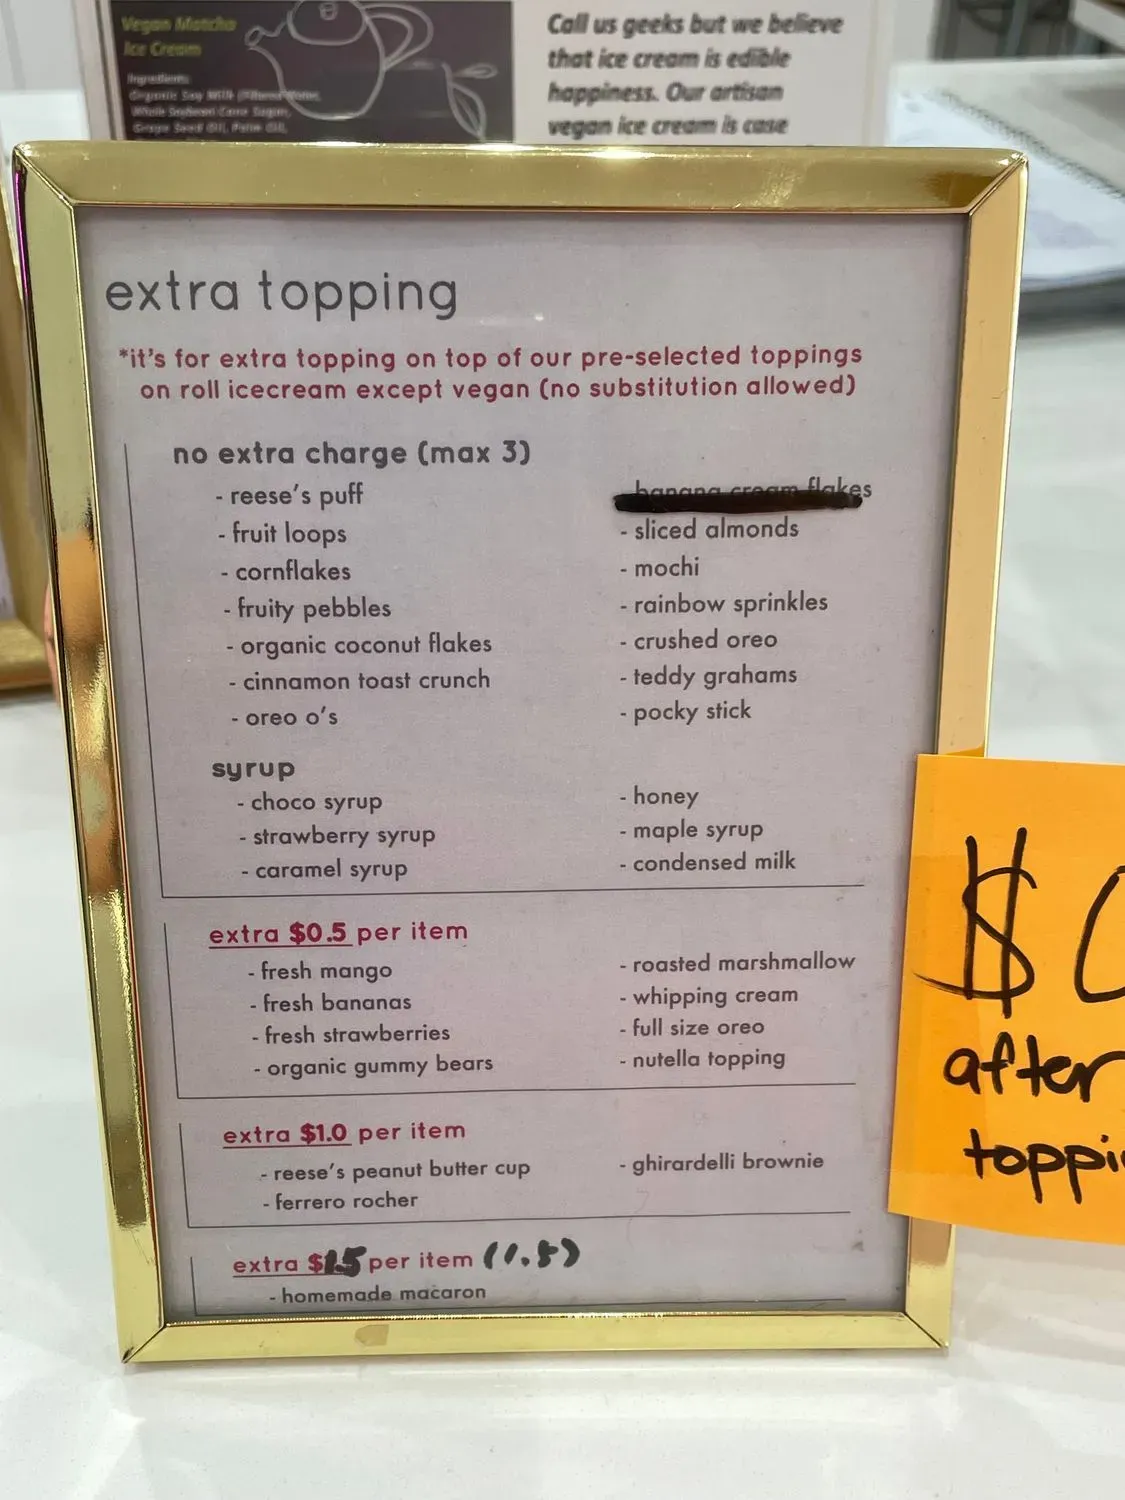 Vegan Matcha
Ice Cream
Ingredients:
Organic Soy Milk (Filtered Water,
Whole Soybean) Cane Sugar,
Grape Seed Oil, Palm Oil,
Call us geeks but we believe
that ice cream is edible
happiness. Our artisan
vegan ice cream is case
extra topping
*it's for extra topping on top of our pre-selected toppings
on roll icecream except vegan (no substitution allowed)
no extra charge (max 3)
- reese's puff
- fruit loops
- cornflakes
- fruity pebbles
- organic coconut flakes
- cinnamon toast crunch
- oreo o's
banana cream flakes
- sliced almonds
- mochi
- rainbow sprinkles
- crushed oreo
- teddy grahams
- pocky stick
syrup
- choco syrup
- strawberry syrup
- caramel syrup
- honey
- maple syrup
- condensed milk
extra $0.5 per item
- fresh mango
- fresh bananas
- fresh strawberries
- organic gummy bears
- roasted marshmallow
- whipping cream
- full size oreo
- nutella topping
extra $1.0 per item
- reese's peanut butter cup
- ferrero rocher
- ghirardelli brownie
extra $1.5 per item (1.5)
- homemade macaron
$0
after
toppi